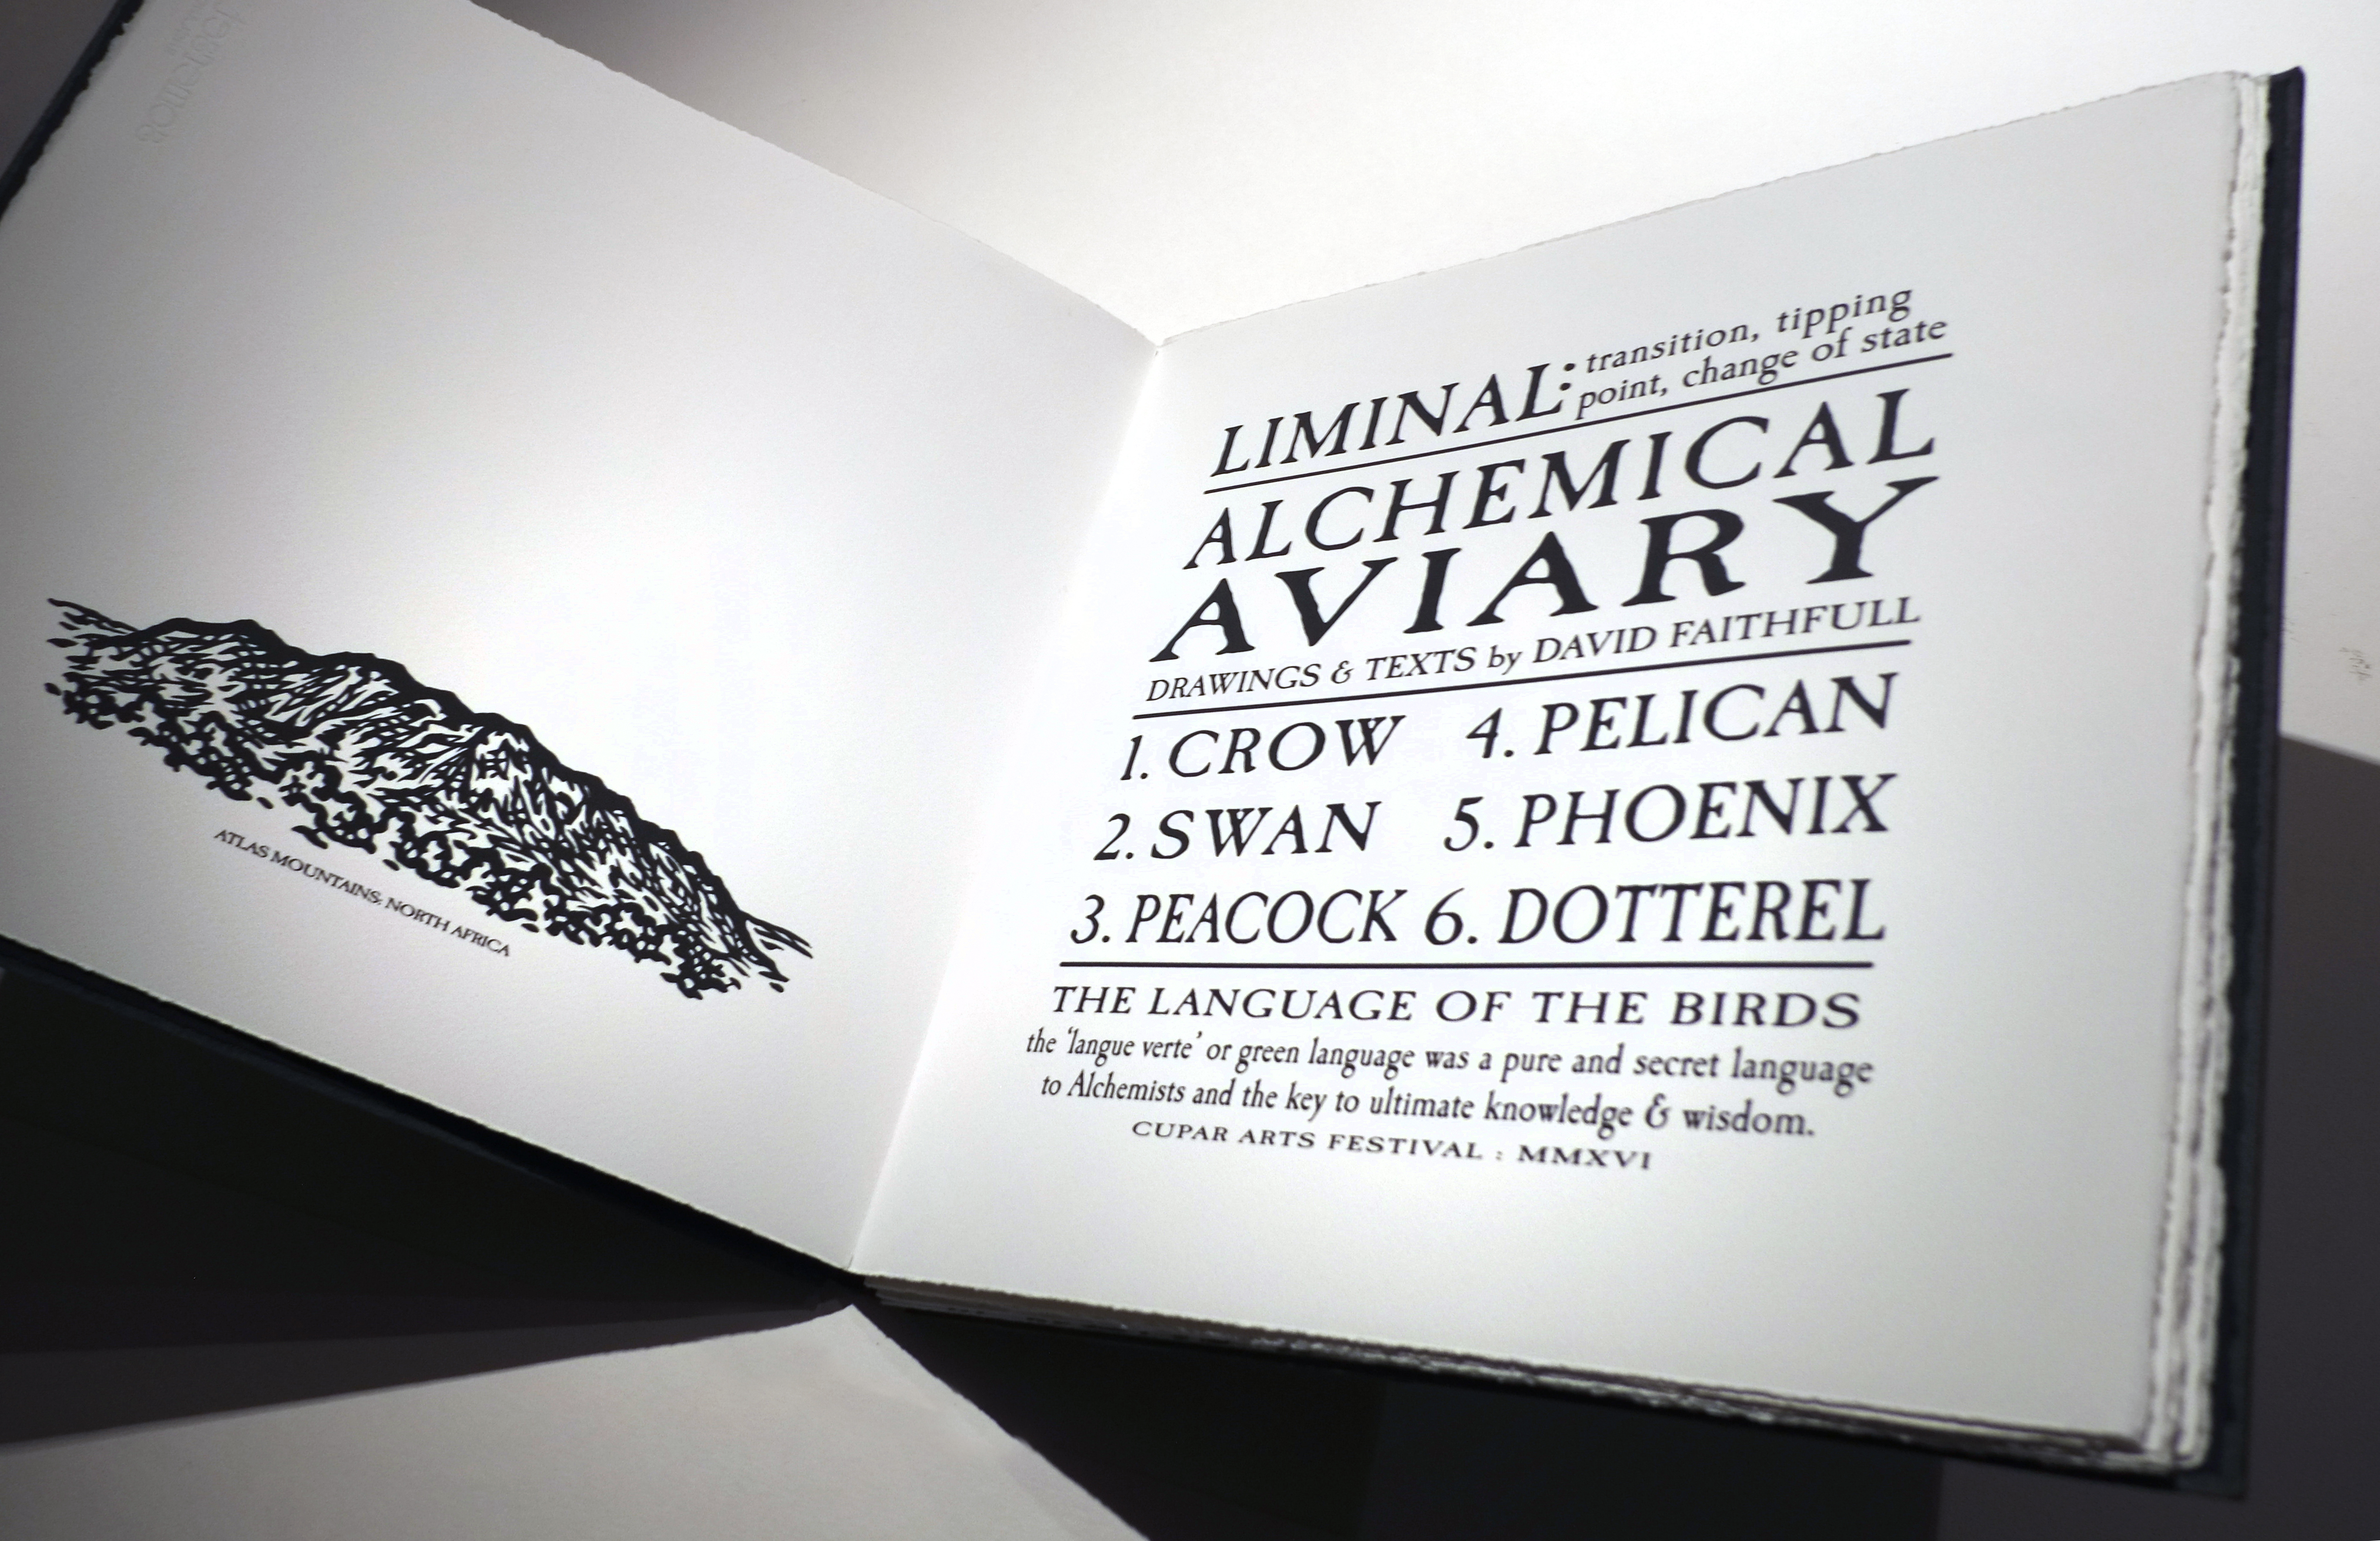 ATLAS MOUNTAINS; NORTH AFRICA
LIMINAL: transition, tipping
point, change of state
ALCHEMICAL
AVIARY
DRAWINGS & TEXTS by DAVID FAITHFULL
1. CROW 4. PELICAN
2. SWAN 5. PHOENIX
3. PEACOCK 6. DOTTEREL
THE LANGUAGE OF THE BIRDS
the ‘langue verte’ or green language was a pure and secret language
to Alchemists and the key to ultimate knowledge & wisdom.
CUPAR ARTS FESTIVAL : MMXVI